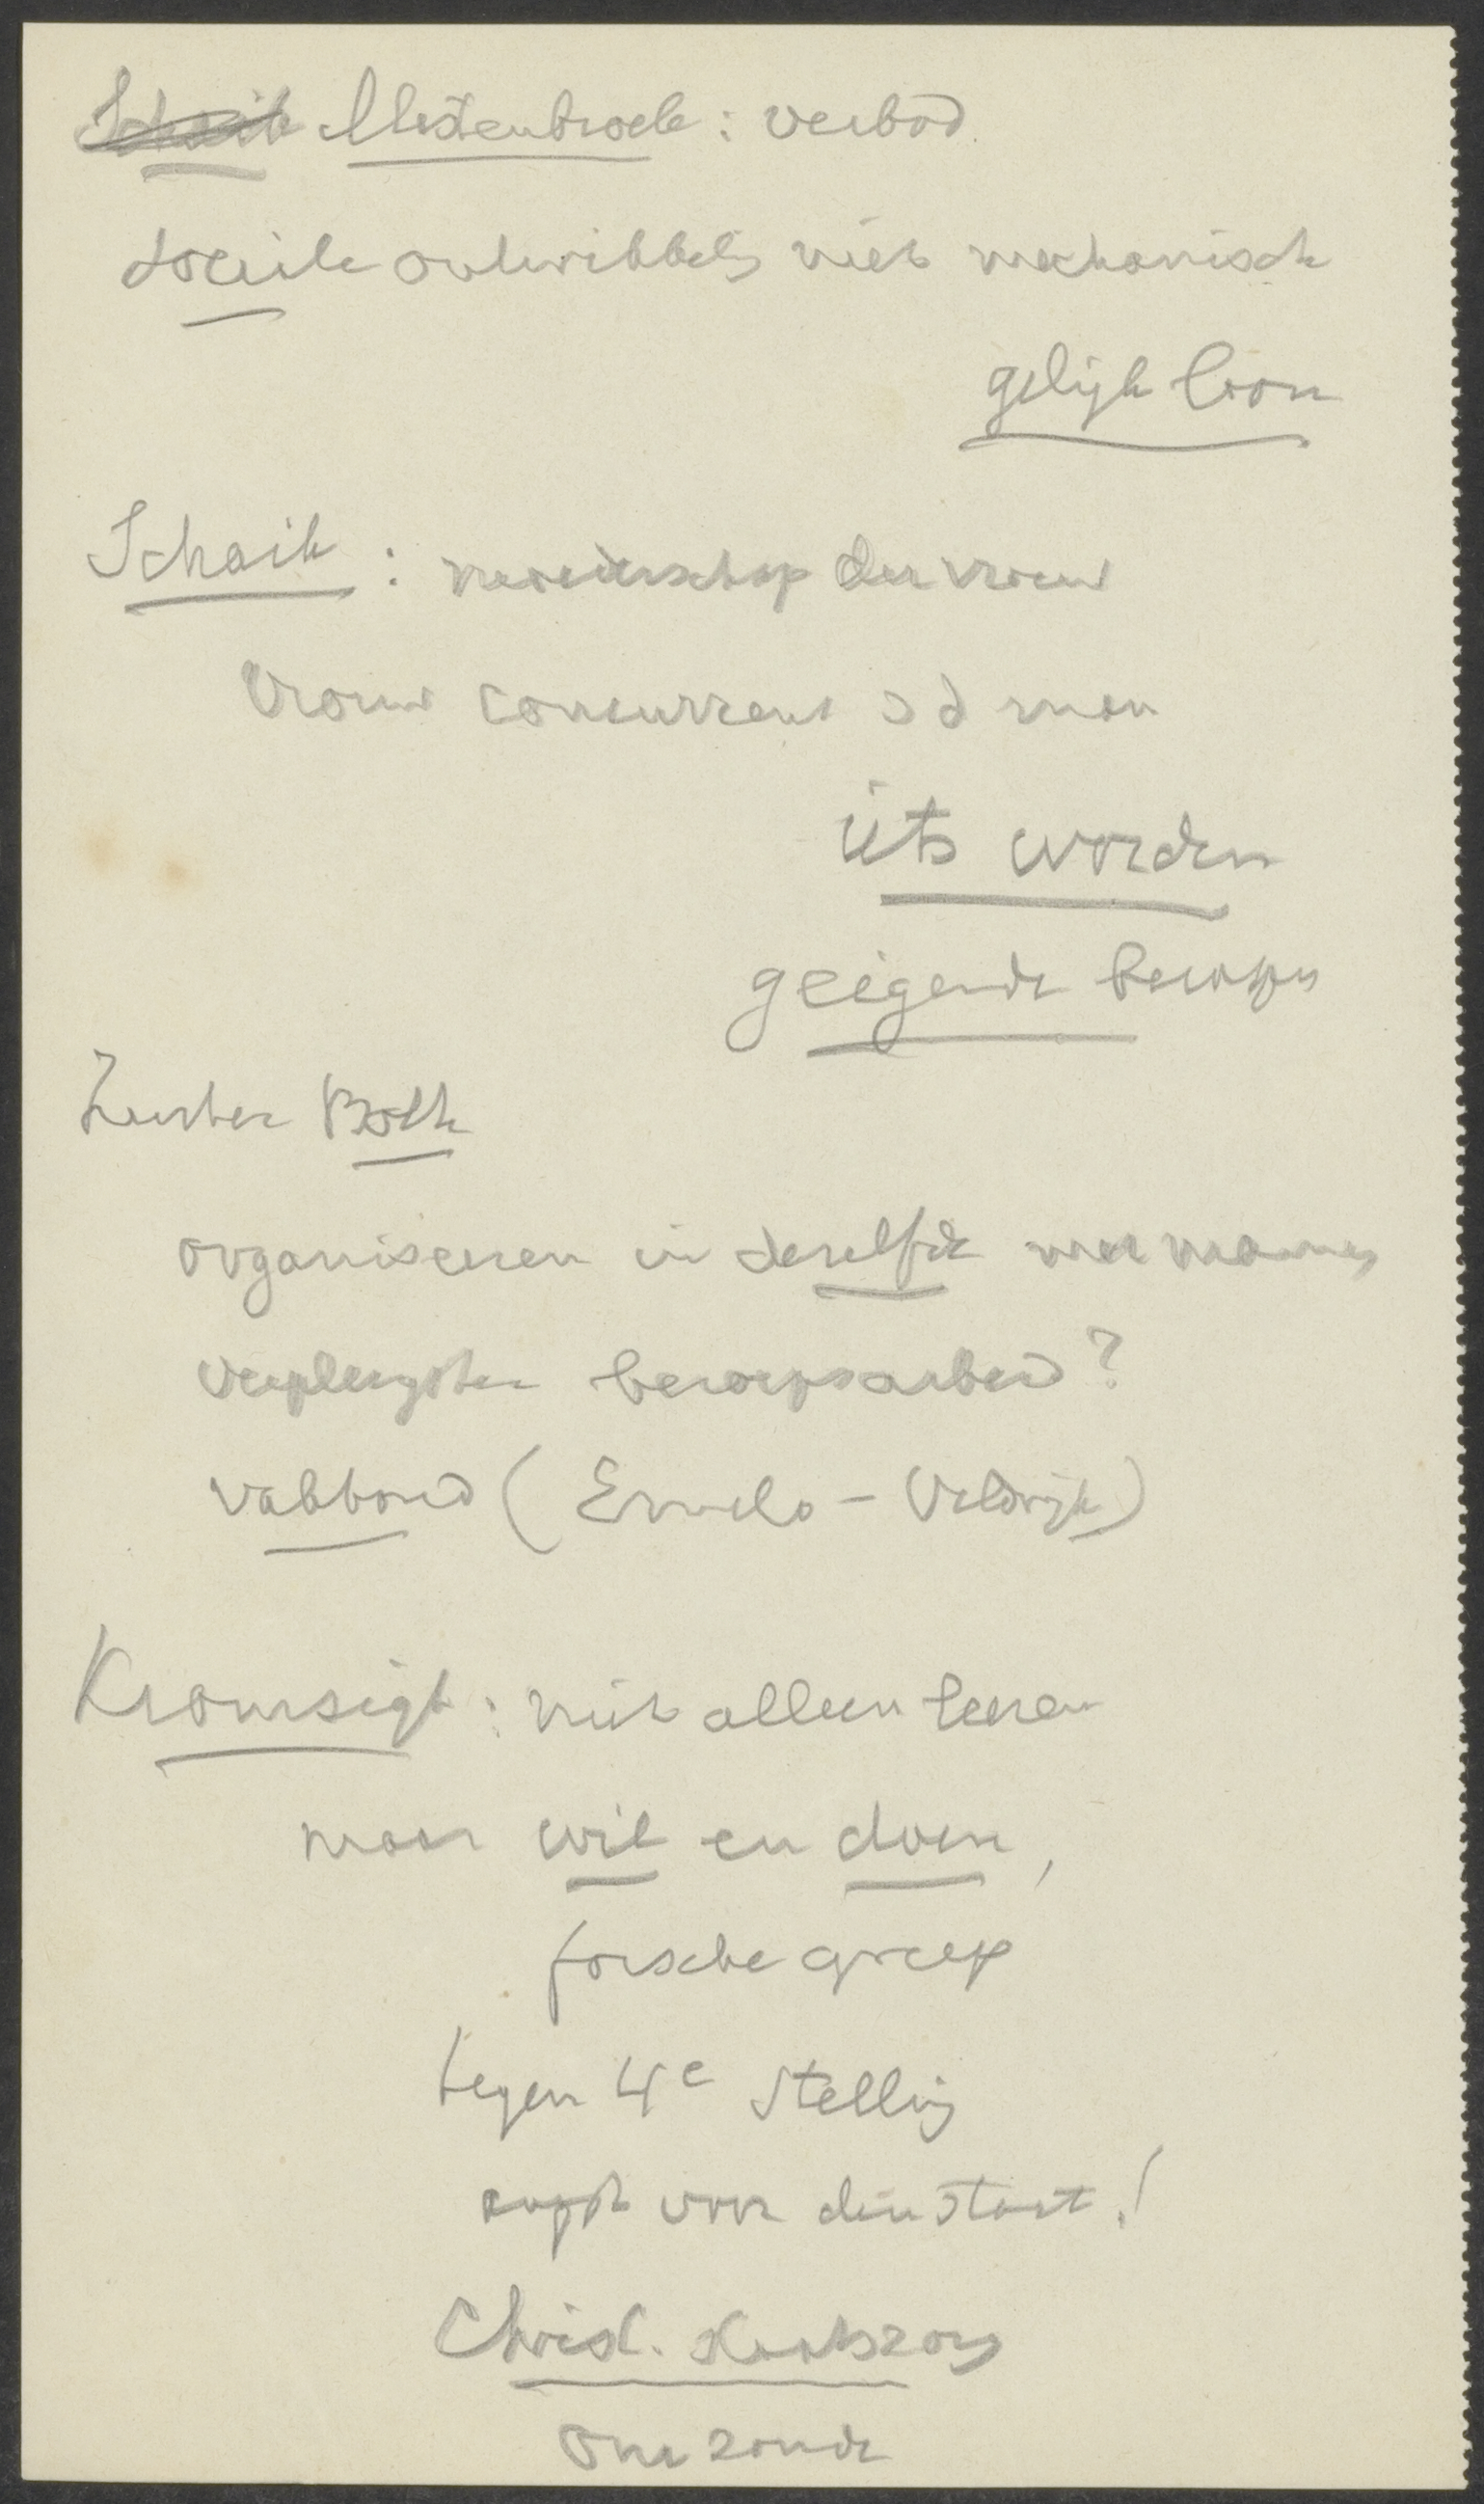 Schaik Mastenbroek: verbod
sociale ontwikkelg niet mechanisch
gelijk loon
Schaik: moederschap der vrouw
Vrouw concurrent v d man
iets worden
geeigende beroepen
Zuster Bolk
organiseeren in dezelfde met mannen
verpleegster beroepsarbeid?
vakbond (Ermelo - Veldwijk)
Kromsigt: niet alleen leeren
maar wil en doen,
forsche greep
tegen 4e stelling
voor den staat!
Christ.
onze zonde